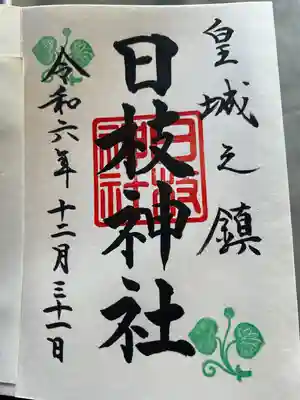 皇城之鎮
日枝神社
日枝神社
令和六年十二月三十一日